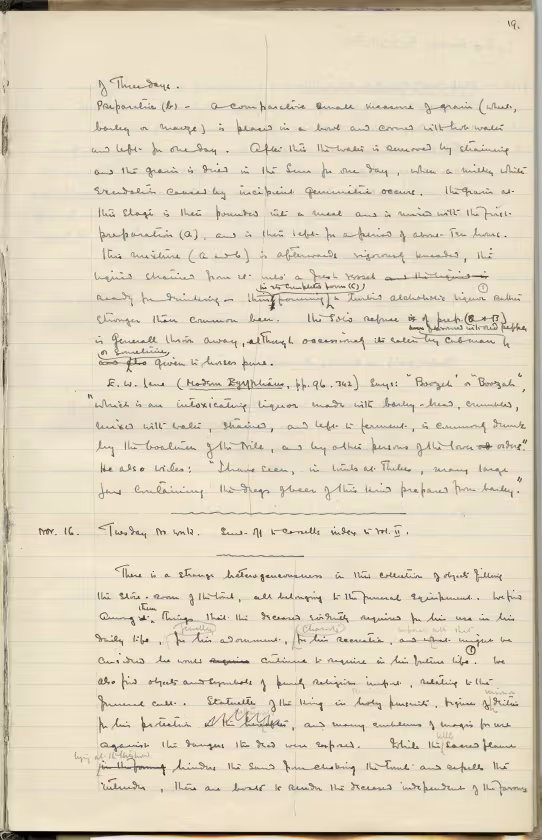 19.
of Three days.
Preparation (b) – a comparative small measure of grain (wheat,
barley or maize) is placed in a bowl and covered with hot water
and left for one day. After this the water is removed by straining
and the grain is dried in the Sun for one day, when a milky white
Exudation caused by incipient germination occurs. The grain at
this stage is then pounded into a meal and is mixed with the first
preparation (a), and is then left for a period of about Ten hours.
This mixture (a and b) is afterwards vigorously kneaded, the
liquid strained from it into a fresh vessel and the liquid is
(in its complete form (C))
ready for drinking – thus forming a turbid alcoholic liquor rather ①
stronger than common beer. The solid refuse is of prep. (a + b)
is generally thrown away, although occasionally its eaten by
or sometimes
and also given to horses pure.
E. W. Lane (Modern Egyptians, pp. 96. 342) says: "Boozeh" or "Boozah",
"which is an intoxicating liquor made with barley-bread, crumbled,
mixed with water, strained, and left to ferment, is commonly drunk
by the boatmen of the Nile, and by other persons of the lower orders."
He also writes: "I have seen, in tombs at Thebes, many large
jars containing the dregs of beer of this kind prepared from barley."
Nov. 16. Tuesday No work. Sent off to Cassells index to Vol. II.
There is a strange heterogeneousness in this collection of objects filling
the Store-room of the tomb, all belonging to the funeral Equipment. We find
them
Amongst Things that the deceased evidently required for his use in his
daily life, for his adornment, for his recreation, and what might be
considered he would require continue to require in his future life. ① We
also find objects and symbols of purely religious import, relating to the
funeral cult. Statuettes of the King in holy pursuits, figures of Deities
for his protection, and many emblems of magic for use
against the dangers the dead were exposed. While the sacred flame
in the forms hinders the Sand from choking the tomb and expells the
intruder, there are boats to render the deceased independent of the favours